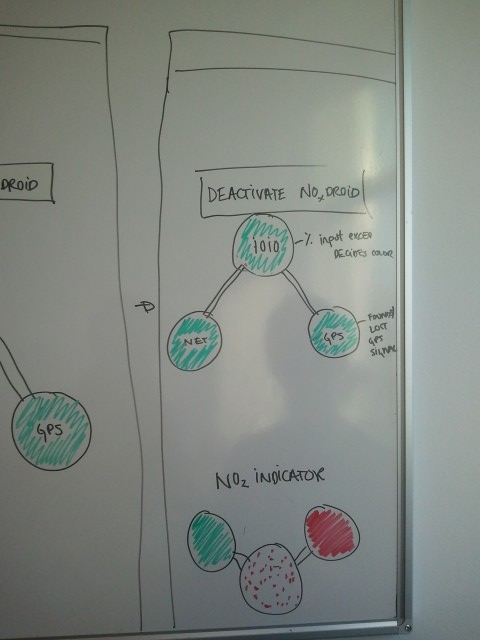 DROID
GPS
DEACTIVATE NOxDROID
IOIO
% input exceed
DECIDES COLOR
NET
GPS
FOUND/
LOST
GPS
SIGNAL
NO2 INDICATOR